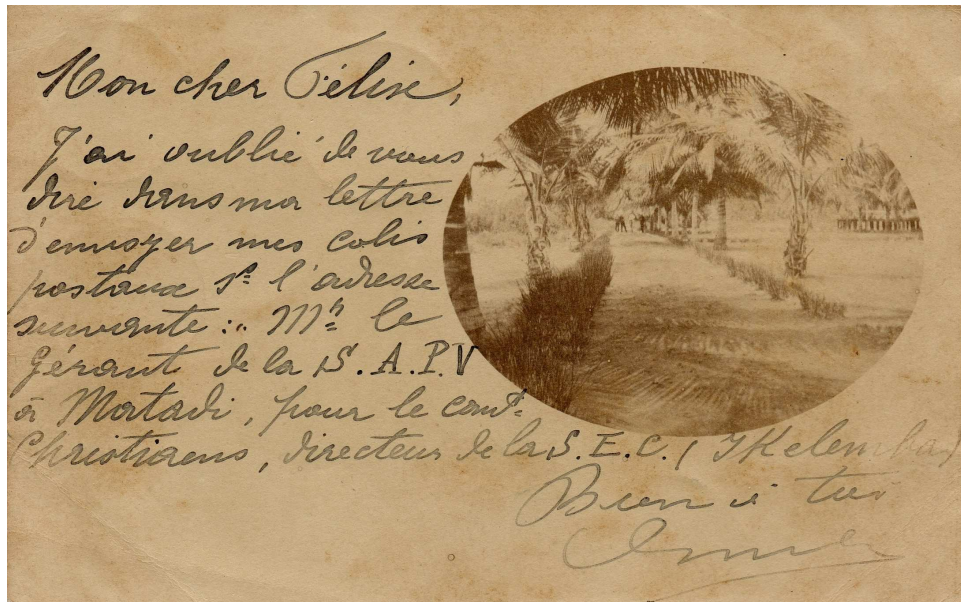 Mon cher Félix,
J'ai oublié de vous
dire dans ma lettre
d'envoyer mes colis
postaux sr l'adresse
suivante : Mr le
Gérant de la S.A.P.V
à Matadi, pour le comt
Christiaens, directeur de la S.E.C. (Ikelemba)
Bien à toi